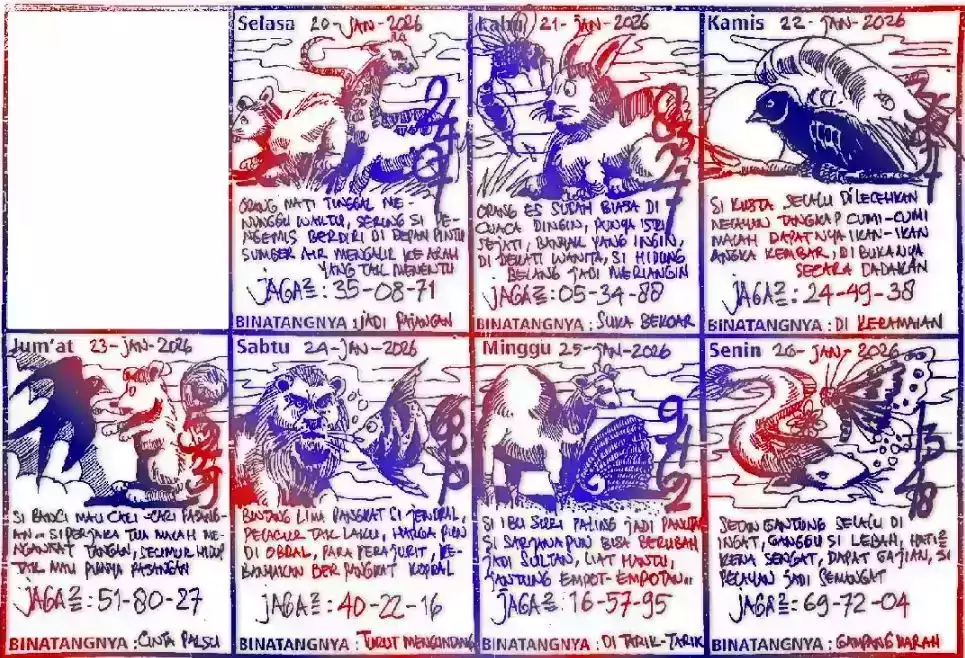 Selasa 20-JAN-2026
ORANG MATI TUNGGAL ME-
NUNGGU WAKTU, SERING SI PE-
NGEMIS BERDIRI DI DEPAN PINTU
SUMBER AIR MENGALIR KE ARAH
YANG TAK MENENTU
JAGA2 : 35-08-71
BINATANGNYA : JADI PAJANGAN
Rabu 21-JAN-2026
ORANG ES SUDAH BIASA DI
CUACA DINGIN, PUNYA ISTRI
SEJATI, BANYAK YANG INGIN,
DI DEKATI WANITA, SI HIDUNG
BELANG JADI MERIANGIN
JAGA2 : 05-34-88
BINATANGNYA : SUKA BEKOAR
Kamis 22-JAN-2026
SI KUSTA SELALU DILECEHKAN
NELAYAN TANGKAP CUMI-CUMI
MALAH DAPATNYA IKAN-IKAN
ANGKA KEMBAR, DIBUKANYA
SECARA DADAKAN
JAGA2 : 24-49-38
BINATANGNYA : DI KERAMAIAN
Jum'at 23-JAN-2026
SI BANCI MAU CARI-CARI PASANG-
AN.. SI PERJAKA TUA MALAH ME-
NGANGKAT TANGAN, SEUMUR HIDUP
TAK MAU PUNYA PASANGAN
JAGA2 : 51-80-27
BINATANGNYA : CINTA PALSU
Sabtu 24-JAN-2026
BINTANG LIMA PANGKAT SI JENDRAL
PELACUR TAK LAKU, HARGA PUN
DI OBRAL, PARA PERAJURIT, KE-
BANYAKAN BERPANGKAT KOPRAL
JAGA2 : 40-22-16
BINATANGNYA : TURUT MENGUNDANG
Minggu 25-JAN-2026
SI IBU SURI PALING JADI PANUTAN
SI SARJANA PUN BISA BERUBAH
JADI SULTAN, LIAT HANTU,
JANTUNG EMPOT-EMPOTAN..
JAGA2 : 16-57-95
BINATANGNYA : DI TARIK-TARIK
Senin 26-JAN-2026
GANTUNG SELALU DI
INGAT, GANGGU SI LEBAH, HATI2
KENA SENGAT, DAPAT GAJIAN, SI
PELAYAN JADI SEMANGAT
JAGA2 : 69-72-04
BINATANGNYA : GAMPANG MARAH